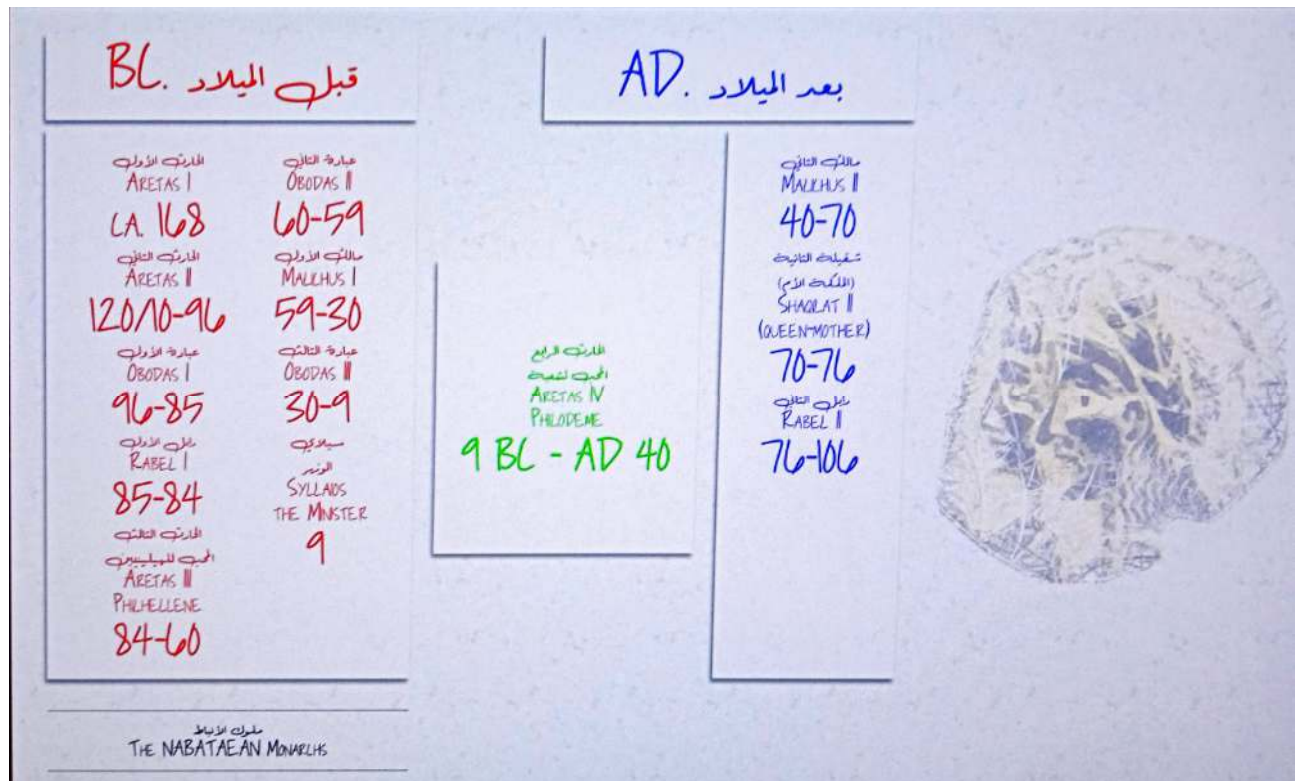 BC. قبل الميلاد
الحارث الأول
ARETAS I
CA. 168
الحارث الثاني
ARETAS II
120/10-96
عبادة الأول
OBODAS I
96-85
رابل الأول
RABEL I
85-84
الحارث الثالث
المحب للهيلينيين
ARETAS III
PHILHELLENE
84-60
عبادة الثاني
OBODAS II
60-59
مالك الأول
MALICHUS I
59-30
عبادة الثالث
OBODAS III
30-9
سيلاي
الوزير
SYLLAIOS
THE MINISTER
9
AD. بعد الميلاد
الحارث الرابع
المحب لشعبه
ARETAS IV
PHILODEME
9 BC - AD 40
مالك الثاني
MALICHUS II
40-70
شقيلة الثانية
(الملكة الأم)
SHAQILAT II
(QUEEN-MOTHER)
70-76
رابل الثاني
RABEL II
76-106
ملوك الأنباط
THE NABATAEAN MONARCHS